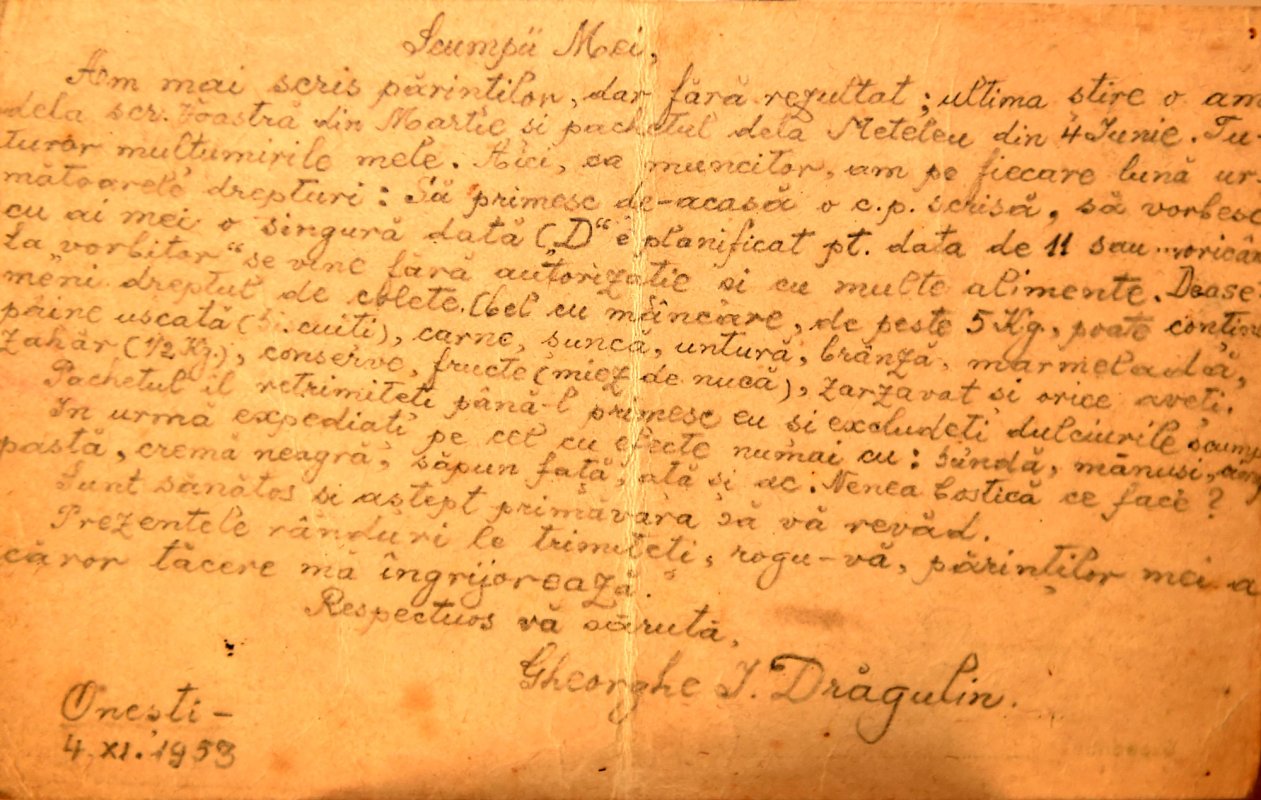 Scumpii Mei,
Am mai scris părintilor, dar fără rezultat; ultima știre o am
dela scr. Voastră din Martie si pachetul dela Meteleu din 4 Iunie. Tu-
turor multumirile mele. Aici, ca muncitor, am pe fiecare lună ur-
mătoarele drepturi: Să primesc de-acasă o c.p. scrisă, să vorbesc
cu ai mei o singură dată („D“ e planificat pt. data de 11 sau oricân
La „vorbitor“ se vine fără autorizatie si cu multe alimente. Dease-
meni dreptul de colete. (Cel cu mâncare, de peste 5 Kg, poate conține
pâine uscată (biscuiti), carne, suncă, untură, brânză, marmeladă,
zahăr (1/2 Kg.), conserve, fructe (miez de nucă), zarzavat si orice aveti.
Pachetul il retrimiteti până-l primesc eu si excludeti dulciurile scump
In urmă expediati pe cel cu efecte numai cu: bundă, mănusi,
pastă, cremă neagră, săpun față, ată și ac. Nenea Costică ce face?
Sunt sănătos si aștept primăvara să vă revăd.
Prezentele rânduri le trimiteți, rogu-vă, părinților mei a
căror tăcere mă îngrijorează.
Respectuos vă sărută,
Gheorghe I. Drăgulin.
Onesti -
4.XI.1953